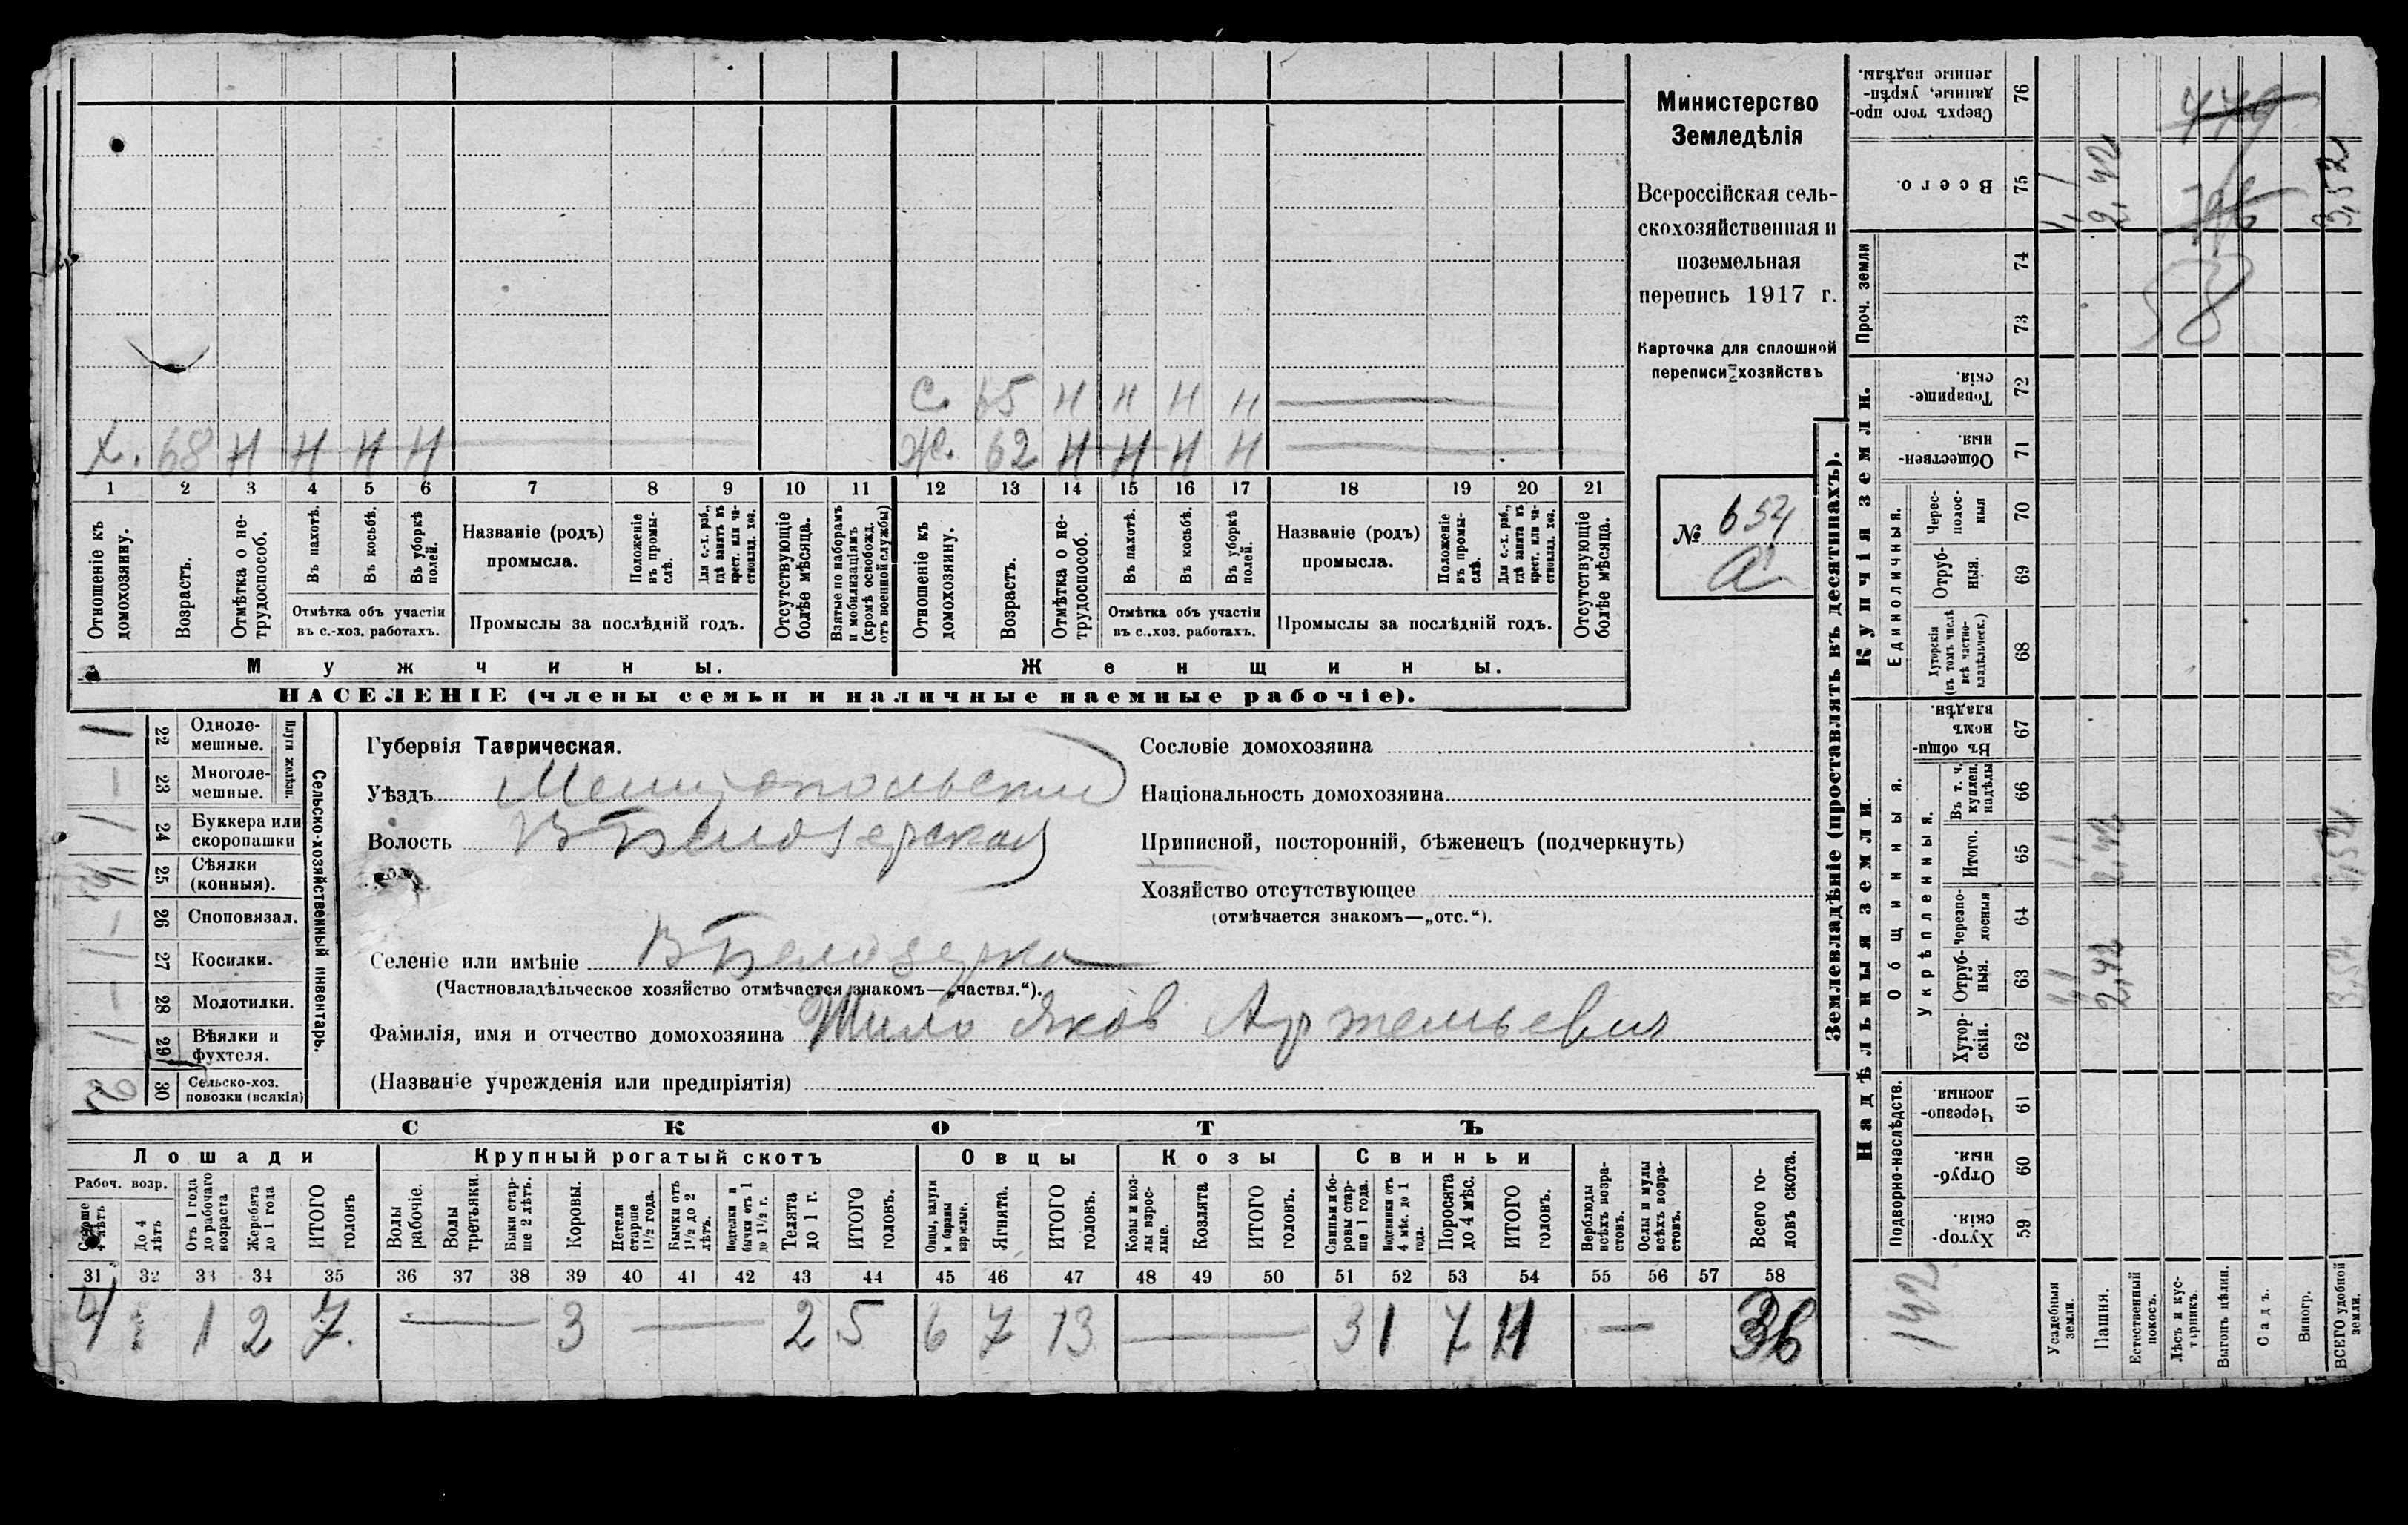 С. 65 Н Н Н Н
Х. 68 Н Н Н Н Ж. 62 Н Н Н Н
1 2 3 4 5 6 7 8 9 10 11 12 13 14 15 16 17 18 19 20 21
Отношеніе къ домохозяину.
Возрастъ.
Отмѣтка о нетрудоспособ.
Въ пахотѣ.
Въ косьбѣ.
Въ уборкѣ полей.
Отмѣтка объ участіи
въ с.-хоз. работахъ.
Названіе (родъ)
промысла.
Положеніе въ промыслѣ.
Для с.-х. раб., гдѣ занятъ въ крест. или частновлад. хоз.
Промыслы за послѣдній годъ.
Отсутствующіе болѣе мѣсяца.
Взятые по наборамъ и мобилизаціямъ (кромѣ освобожд. отъ военной службы)
Отношеніе къ домохозяину.
Возрастъ.
Отмѣтка о нетрудоспособ.
Въ пахотѣ.
Въ косьбѣ.
Въ уборкѣ полей.
Отмѣтка объ участіи
въ с..хоз. работахъ.
Названіе (родъ)
промысла.
Положеніе въ промыслѣ.
Для с.-х. раб., гдѣ занята въ крест. или частновлад. хоз.
Промыслы за послѣдній годъ.
Отсутствующіе болѣе мѣсяца.
Мужчины.
Женщины.
НАСЕЛЕНІЕ (члены семьи и наличные наемные рабочіе).
Министерство
Земледѣлія
Всероссійская сель-
скохозяйственная и
поземельная
перепись 1917 г.
Карточка для сплошной
переписи хозяйствъ
№ 654
а
1 22 Одноле-
мешные.
— 23 Многоле-
мешные.
Плуги желѣзн.
1 24 Буккера или
скоропашки
25 Сѣялки
(конныя).
— 26 Сноповязал.
1 27 Косилки.
— 28 Молотилки.
1 29 Вѣялки и
фухтеля.
2 30 Сельско-хоз.
повозки (всякія)
Сельско-хозяйственный инвентарь.
Губернія Таврическая.
Уѣздъ Мелитопольский
Волость В Белозерская
Селеніе или имѣніе В Белозерка
(Частновладѣльческое хозяйство отмѣчается знакомъ—„частвл.“).
Фамилія, имя и отчество домохозяина Шило Яков Артемьевич
(Названіе учрежденія или предпріятія)
Сословіе домохозяина
Національность домохозяина
Приписной, посторонній, бѣженецъ (подчеркнуть)
Хозяйство отсутствующее
(отмѣчается знакомъ—„отс.“).
СКОТЪ
Лошади
Крупный рогатый скотъ
Овцы
Козы
Свиньи
Рабоч. возр.
Старше 4 лѣтъ
До 4 лѣтъ
Отъ 1 года до рабочаго возраста
Жеребята до 1 года
ИТОГО головъ
Волы рабочіе.
Волы третьяки.
Быки старше 2 лѣтъ.
Коровы.
Нетели старше 1½ года.
Бычки отъ 1½ до 2 лѣтъ.
Подтелки и бычки отъ 1 до 1½ г.
Телята до 1 г.
ИТОГО головъ.
Овцы, валухи и бараны взрослые.
Ягнята.
ИТОГО головъ.
Козы и козлы взрослые.
Козлята
ИТОГО головъ.
Свиньи и боровы старше 1 года.
Подсвинки отъ 4 мѣс. до 1 года.
Поросята до 4 мѣс.
ИТОГО головъ.
Верблюды всѣхъ возрастовъ.
Ослы и мулы всѣхъ возрастовъ.
Всего головъ скота.
31 32 33 34 35 36 37 38 39 40 41 42 43 44 45 46 47 48 49 50 51 52 53 54 55 56 57 58
4 1 2 7. — 3 — 2 5 6 7 13 — 3 1 7 11 — 36
Землевладѣніе (проставлять въ десятинахъ).
Купчія земли.
Надѣльныя земли.
Проч. земли
Единоличныя.
Общинныя.
Укрѣпленныя.
Подворно-наслѣдств.
Сверхъ того проданные, укрѣпленные надѣлы. 76
Всего. 75
74
73
Товарищескія. 72
Общественныя. 71
Чересполосныя 70
Отрубныя. 69
Хуторскія (въ томъ числѣ всѣ частновладѣльческ.) 68
Въ общинномъ владѣн. 67
Въ т. ч. куплен. надѣлы 66
Итого. 65
Черезполосныя 64
Отрубныя. 63
Хуторскія. 62
Черезполосныя 61
Отрубныя 60
Хуторскія. 59
142
Усадебныя земли.
1,1 1,1 1,1
Пашня.
2,42 2,42 2,42
Естественный покосъ.
Лѣсъ и кустарникъ.
Выгонъ цѣлин.
Садъ.
Виногр.
ВСЕГО удобной земли.
3,52 3,52 3,52
779
796
58